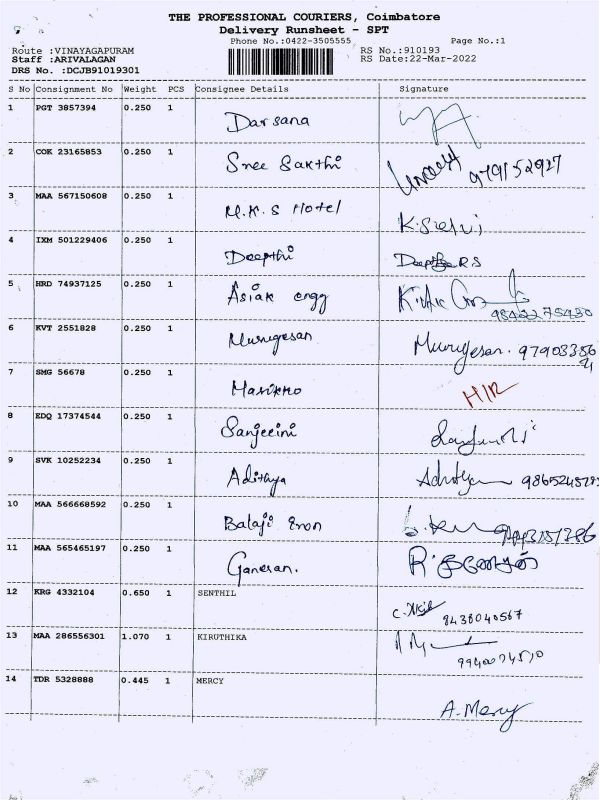 THE PROFESSIONAL COURIERS, Coimbatore
Delivery Runsheet - SPT
Phone No.:0422-3505555 Page No.:1
Route :VINAYAGAPURAM RS No.:910193
Staff :ARIVALAGAN RS Date:22-Mar-2022
DRS No. :DCJB91019301
S No Consignment No Weight PCS Consignee Details Signature
1 PGT 3857394 0.250 1 Darsana
2 COK 23165853 0.250 1 Sree Sakthi 979152927
3 MAA 567150608 0.250 1 M.K.S Hotel K.Selvi
4 IXM 501229406 0.250 1 Deepthi
5 HRD 74937125 0.250 1 Asian engg 9842275430
6 KVT 2551828 0.250 1 Murugesan Murugesan. 97903386
7 SMG 56678 0.250 1 H/R
8 EDQ 17374544 0.250 1 Sanjeeini
9 SVK 10252234 0.250 1 Adithya
10 MAA 566668592 0.250 1 Balaji
11 MAA 565465197 0.250 1 Ganesan.
12 KRG 4332104 0.650 1 SENTHIL 9438040567
13 MAA 286556301 1.070 1 KIRUTHIKA
14 TDR 5328888 0.445 1 MERCY A. Mercy